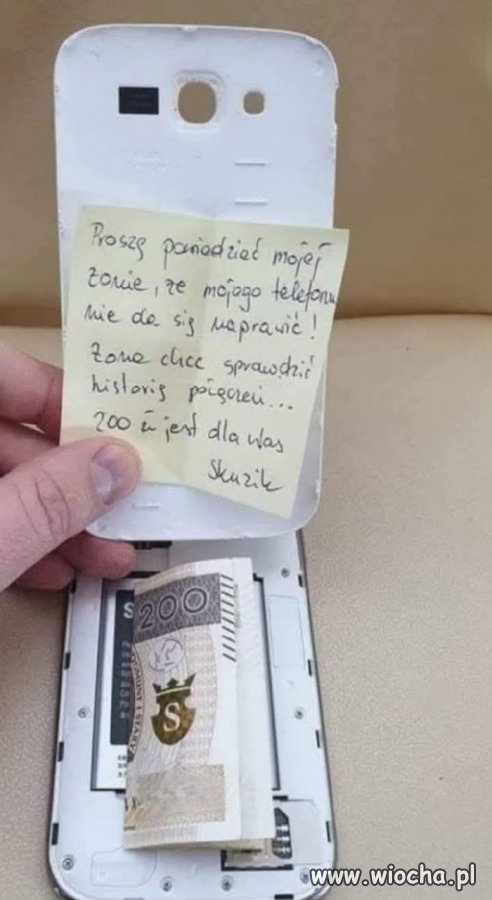 Proszę powiedzieć mojej
żonie, że mojego telefonu
nie da się naprawić!
Żona chce sprawdzić
historię połączeń...
200 zł jest dla Was
200
S
ZYGMUNT I STARY
S
www.wiocha.pl